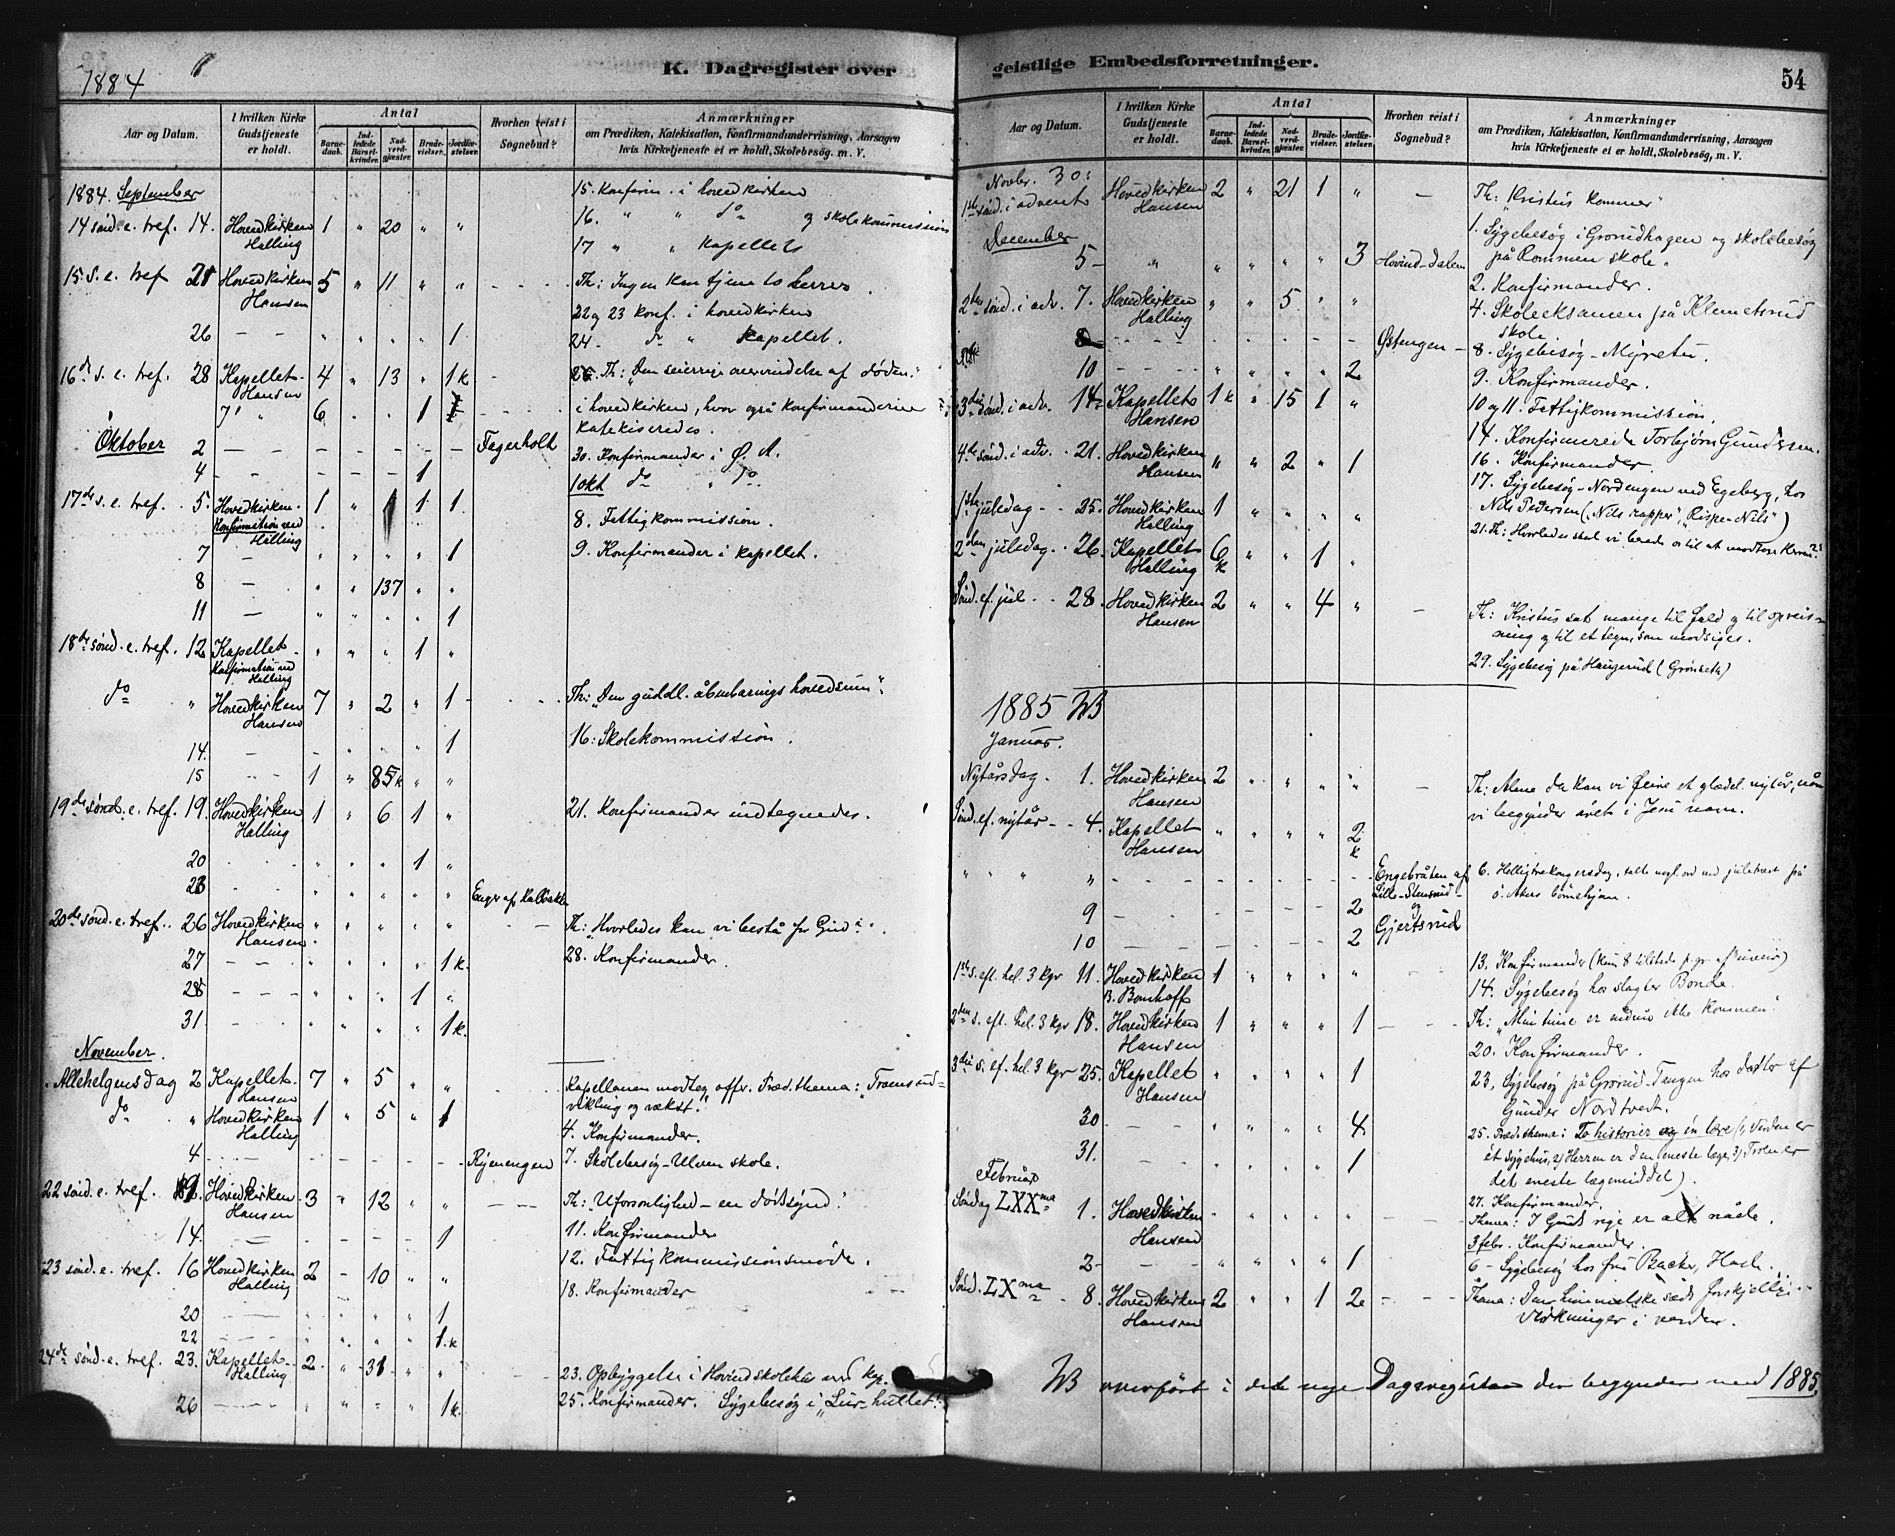 1884
K. Dagregister over
Aar og Datum.
I hvilken Kirke Gudstjeneste er holdt.
Antal
Barnedaab.
Indledede Barselkvinder.
Nadverdgjæster.
Brudevielser.
Jordfæstelser.
Hvorhen reist i Sognebud?
Anmærkninger
om Prædiken, Katekisation, Konfirmandundervisning, Aarsagen
hvis Kirketjeneste ei er holdt, Skolebesøg. m. V.
1884. September 15. Konfirm. i hovedkirken
14 sønd. e. tref. 14. Hovedkirken Halling 1 " 20 " " 16. " " do og skolekommission
17 " " Kapellets
15 S. e. tref 21 Hovedkirken Hansen 5 " 11 " " Th: Ingen kan tjene to herrer.
22 og 23 konf. i hovedkirken
26 - - " " " " 1 24 - do " Kapellet.
16de s. e. tref. 28 Kapellet Hansen 4 " 13 " 1k Th: "Den seierrige overvindelse af døden."
7 " 6 . . 1 i hovedkirken, hvor også konfirmanderne
katekiseredes.
Oktober 2 - - - - - - Fagerholt 30. Konfirmander i Ø. A.
4 - - - - - 1 1 okt do " do.
17de s. e. tref. 5. Hovedkirken. Konfirmation ved Halling 1 " 1 1 8. Fattigkommission.
7 - " " " " 1 9. Konfirmander i kapellet.
8 - " " 137 " "
11 - " " " " 1
18de sønd. e. tref. 12 Kapellet. Konfirmation ved Halling " " " 1 "
do " Hovedkirken Hansen 7 " 2 " 1 Th: "Den guddl. åbenbarings hovedsum".
14. - - " " " 1 16. Skolekommission.
15 - - 1 " 85k " "
19de sønd. e. tref. 19. Hovedkirken Halling 1 " 6 1 " 21. Konfirmander indtegnedes.
20 . . " " " 1 "
23 . . " " " " "
20de sønd. e. tref. 26 Hovedkirken Hansen " " " " " Th: "Hvorledes kan vi bestå for Gud?".
27 - - " " " " 1k. 28. Konfirmander.
28 - - " " " 1 "
31 - - " " " " 1k.
November.
Allehelgensdag 2 Kapellet. Hansen 7 " 5 " " Kapellanen modtog offr. Præd. thema: "Troens ud-
vikling og vækst."
do " Hovedkirken Halling 1 " 5 " 1 4. Konfirmander.
4 - - - - - - - Rjenengen 7. Skolebesøg - Ulven skole.
22 sønd. e. tref. 9 Hovedkirken Hansen 3 " 12 " " Th: "Uforsonlighed - en dødssynd."
14. - - 1 11. Konfirmander
12. Fattigkommissionsmøde.
23 sønd. e. tref. 16 Hovedkirken Halling 2 - 10 " " 18. Konfirmander
20 - - " " " " 1
22 - - " " " " 1k
24de sønd. e. tref. 23. Kapellet Halling 2 " 31 " " 23. Opbyggelse i Hovind skolehus ved kap.
26 - - " " " " 1k. 25. Konfirmander. Sygebesøg i "Lur-hullet."
geistlige Embedsforretninger.
54
Aar og Datum.
I hvilken Kirke Gudstjeneste er holdt.
Antal
Barnedaab.
Indledede Barselkvinder.
Nadverdgjæster.
Brudevielser.
Jordfæstelser.
Hvorhen reist i Sognebud?
Anmærkninger
om Prædiken, Katekisation, Konfirmandundervisning, Aarsagen
hvis Kirketjeneste ei er holdt, Skolebesøg, m. V.
Novbr. 30.
1ste sønd. i advent Hovedkirken Hansen 2 " 21 1 " - Th: "Kristus kommer"
December 1. Sygebesøg i Grorudhagen og skolebesøg
5 - " " " " " 3 Hovind-dalen på Rommen skole.
2. Konfirmander.
2den sønd. i adv. 7. Hovedkirken Halling " " 5 " " 4. Skoleeksamen på Klemetsrud
skole.
8 - - - - - - - Østengen - 8. Sygebesøg - Myretu.
10 - - " " " " 2 9. Konfirmander.
3die sønd. i adv. 14. Kapellet Hansen 1k " 15 1 " 10 og 11. Fattigkommission.
14. Konfirmerede Torbjørn Gundersen.
4de sønd. i adv. 21. Hovedkirken Hansen " " 2 " 1 16. Konfirmander.
17. Sygebesøg - Nordengen ved Egeberg, hos
1ste juledag - 25. Hovedkirken Halling 1 " " " " Nils Pedersen ("Nils rapper", "Rispe-Nils")
2den juledag - 26. Kapellet Halling 6k " " 1 " 21. Th: Hvorledes skal vi berede os til at modtage Herren?
Sønd. ef. jul - 28. Hovedkirken Hansen 2 " " 4 " - Th: Kristus sat mange til fald og til opreis-
ning og til et tegn, som modsiges.
29. Sygebesøg på Haugerud (Grønseth)
1885
Januar.
Nytårsdag. 1. Hovedkirken Hansen 2 " " " " - Th: Alene da kan vi feire et glædel. nytår, når
vi begynder året i Jesu navn.
Sønd. ef. nytår - 4. Kapellet Hansen " " " " 2k
" " " " - - - - - - Engebråten af Lille-Stensrud og Gjertsrud 6. Helligtrekongersdag, talte
9 - - - - - - 2
10 - - - - - - 2
1ste s. eft. hel. 3 kgr 11. Hovedkirken B. Bomhoff 1 " " " " 13. Konfirmander (kun 8 tilstede
14. Sygebesøg hos slagter Bonde.
2den s. eft. hel. 3 kgr 18. Hovedkirken Hansen 1 " " " 1 - - Th: "Min time er endnu ikke kommen".
20. Konfirmander.
3die s. ef. hel. 3 kgr 25. Kapellet Hansen " " " " 1 23. Sygebesøg på Grorud-Tangen hos datter af
Gunder Nordtvet.
30 - - " " " " 4. 25. Præd. thema: To historier og én lære (1, Verden er
31. - - " " " " 1 ét sygehus, 2) Herren er den eneste læge, 3) Troen er
det eneste lægemiddel).
Februar 27. Konfirmander.
Søndag LXXma 1. Hovedkirken Hansen " " " " " - - Thema: I Guds rige er alt nåde.
3 febr. Konfirmander.
2 - - " " " " 1 6 - Sygebesøg hos fru Backer, Hasle.
Sønd. LXma 8. Hovedkirken Hansen 2 " " 1 2 - - Thema: Den himmelske sæds forskjellige
virkninger i verden.
overført i det nye Dagsregister der begynder med 1885.